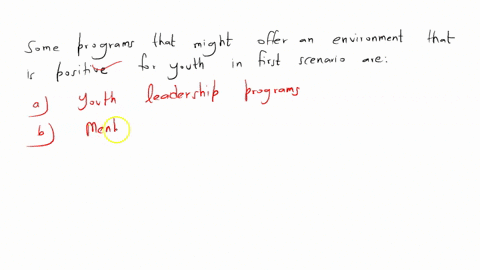 Some programs that might offer an environment that
is positive for youth in first scenario are:
a) Youth leadership programs
b) Ment